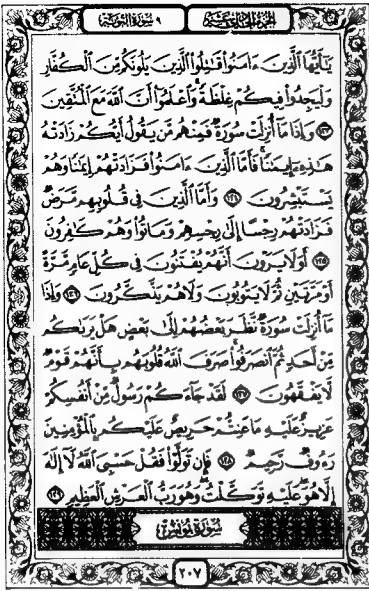 الجزء الحادي عشر ٩ سورة التوبة
يَـٰٓأَيُّهَا ٱلَّذِينَ ءَامَنُوا۟ قَـٰتِلُوا۟ ٱلَّذِينَ يَلُونَكُم مِّنَ ٱلْكُفَّارِ
وَلْيَجِدُوا۟ فِيكُمْ غِلْظَةً ۚ وَٱعْلَمُوٓا۟ أَنَّ ٱللَّهَ مَعَ ٱلْمُتَّقِينَ
١٢٣ وَإِذَا مَآ أُنزِلَتْ سُورَةٌ فَمِنْهُم مَّن يَقُولُ أَيُّكُمْ زَادَتْهُ
هَـٰذِهِۦٓ إِيمَـٰنًا ۚ فَأَمَّا ٱلَّذِينَ ءَامَنُوا۟ فَزَادَتْهُمْ إِيمَـٰنًا وَهُمْ
يَسْتَبْشِرُونَ ١٢٤ وَأَمَّا ٱلَّذِينَ فِى قُلُوبِهِم مَّرَضٌ
فَزَادَتْهُمْ رِجْسًا إِلَىٰ رِجْسِهِمْ وَمَاتُوا۟ وَهُمْ كَـٰفِرُونَ
١٢٥ أَوَلَا يَرَوْنَ أَنَّهُمْ يُفْتَنُونَ فِى كُلِّ عَامٍ مَّرَّةً
أَوْ مَرَّتَيْنِ ثُمَّ لَا يَتُوبُونَ وَلَا هُمْ يَذَّكَّرُونَ ١٢٦ وَإِذَا
مَآ أُنزِلَتْ سُورَةٌ نَّظَرَ بَعْضُهُمْ إِلَىٰ بَعْضٍ هَلْ يَرَىٰكُم
مِّنْ أَحَدٍ ثُمَّ ٱنصَرَفُوا۟ ۚ صَرَفَ ٱللَّهُ قُلُوبَهُم بِأَنَّهُمْ قَوْمٌ
لَّا يَفْقَهُونَ ١٢٧ لَقَدْ جَآءَكُمْ رَسُولٌ مِّنْ أَنفُسِكُمْ
عَزِيزٌ عَلَيْهِ مَا عَنِتُّمْ حَرِيصٌ عَلَيْكُم بِٱلْمُؤْمِنِينَ
رَءُوفٌ رَّحِيمٌ ١٢٨ فَإِن تَوَلَّوْا۟ فَقُلْ حَسْبِىَ ٱللَّهُ لَآ إِلَـٰهَ
إِلَّا هُوَ ۖ عَلَيْهِ تَوَكَّلْتُ ۖ وَهُوَ رَبُّ ٱلْعَرْشِ ٱلْعَظِيمِ ١٢٩
سورة يونس
٢٠٧